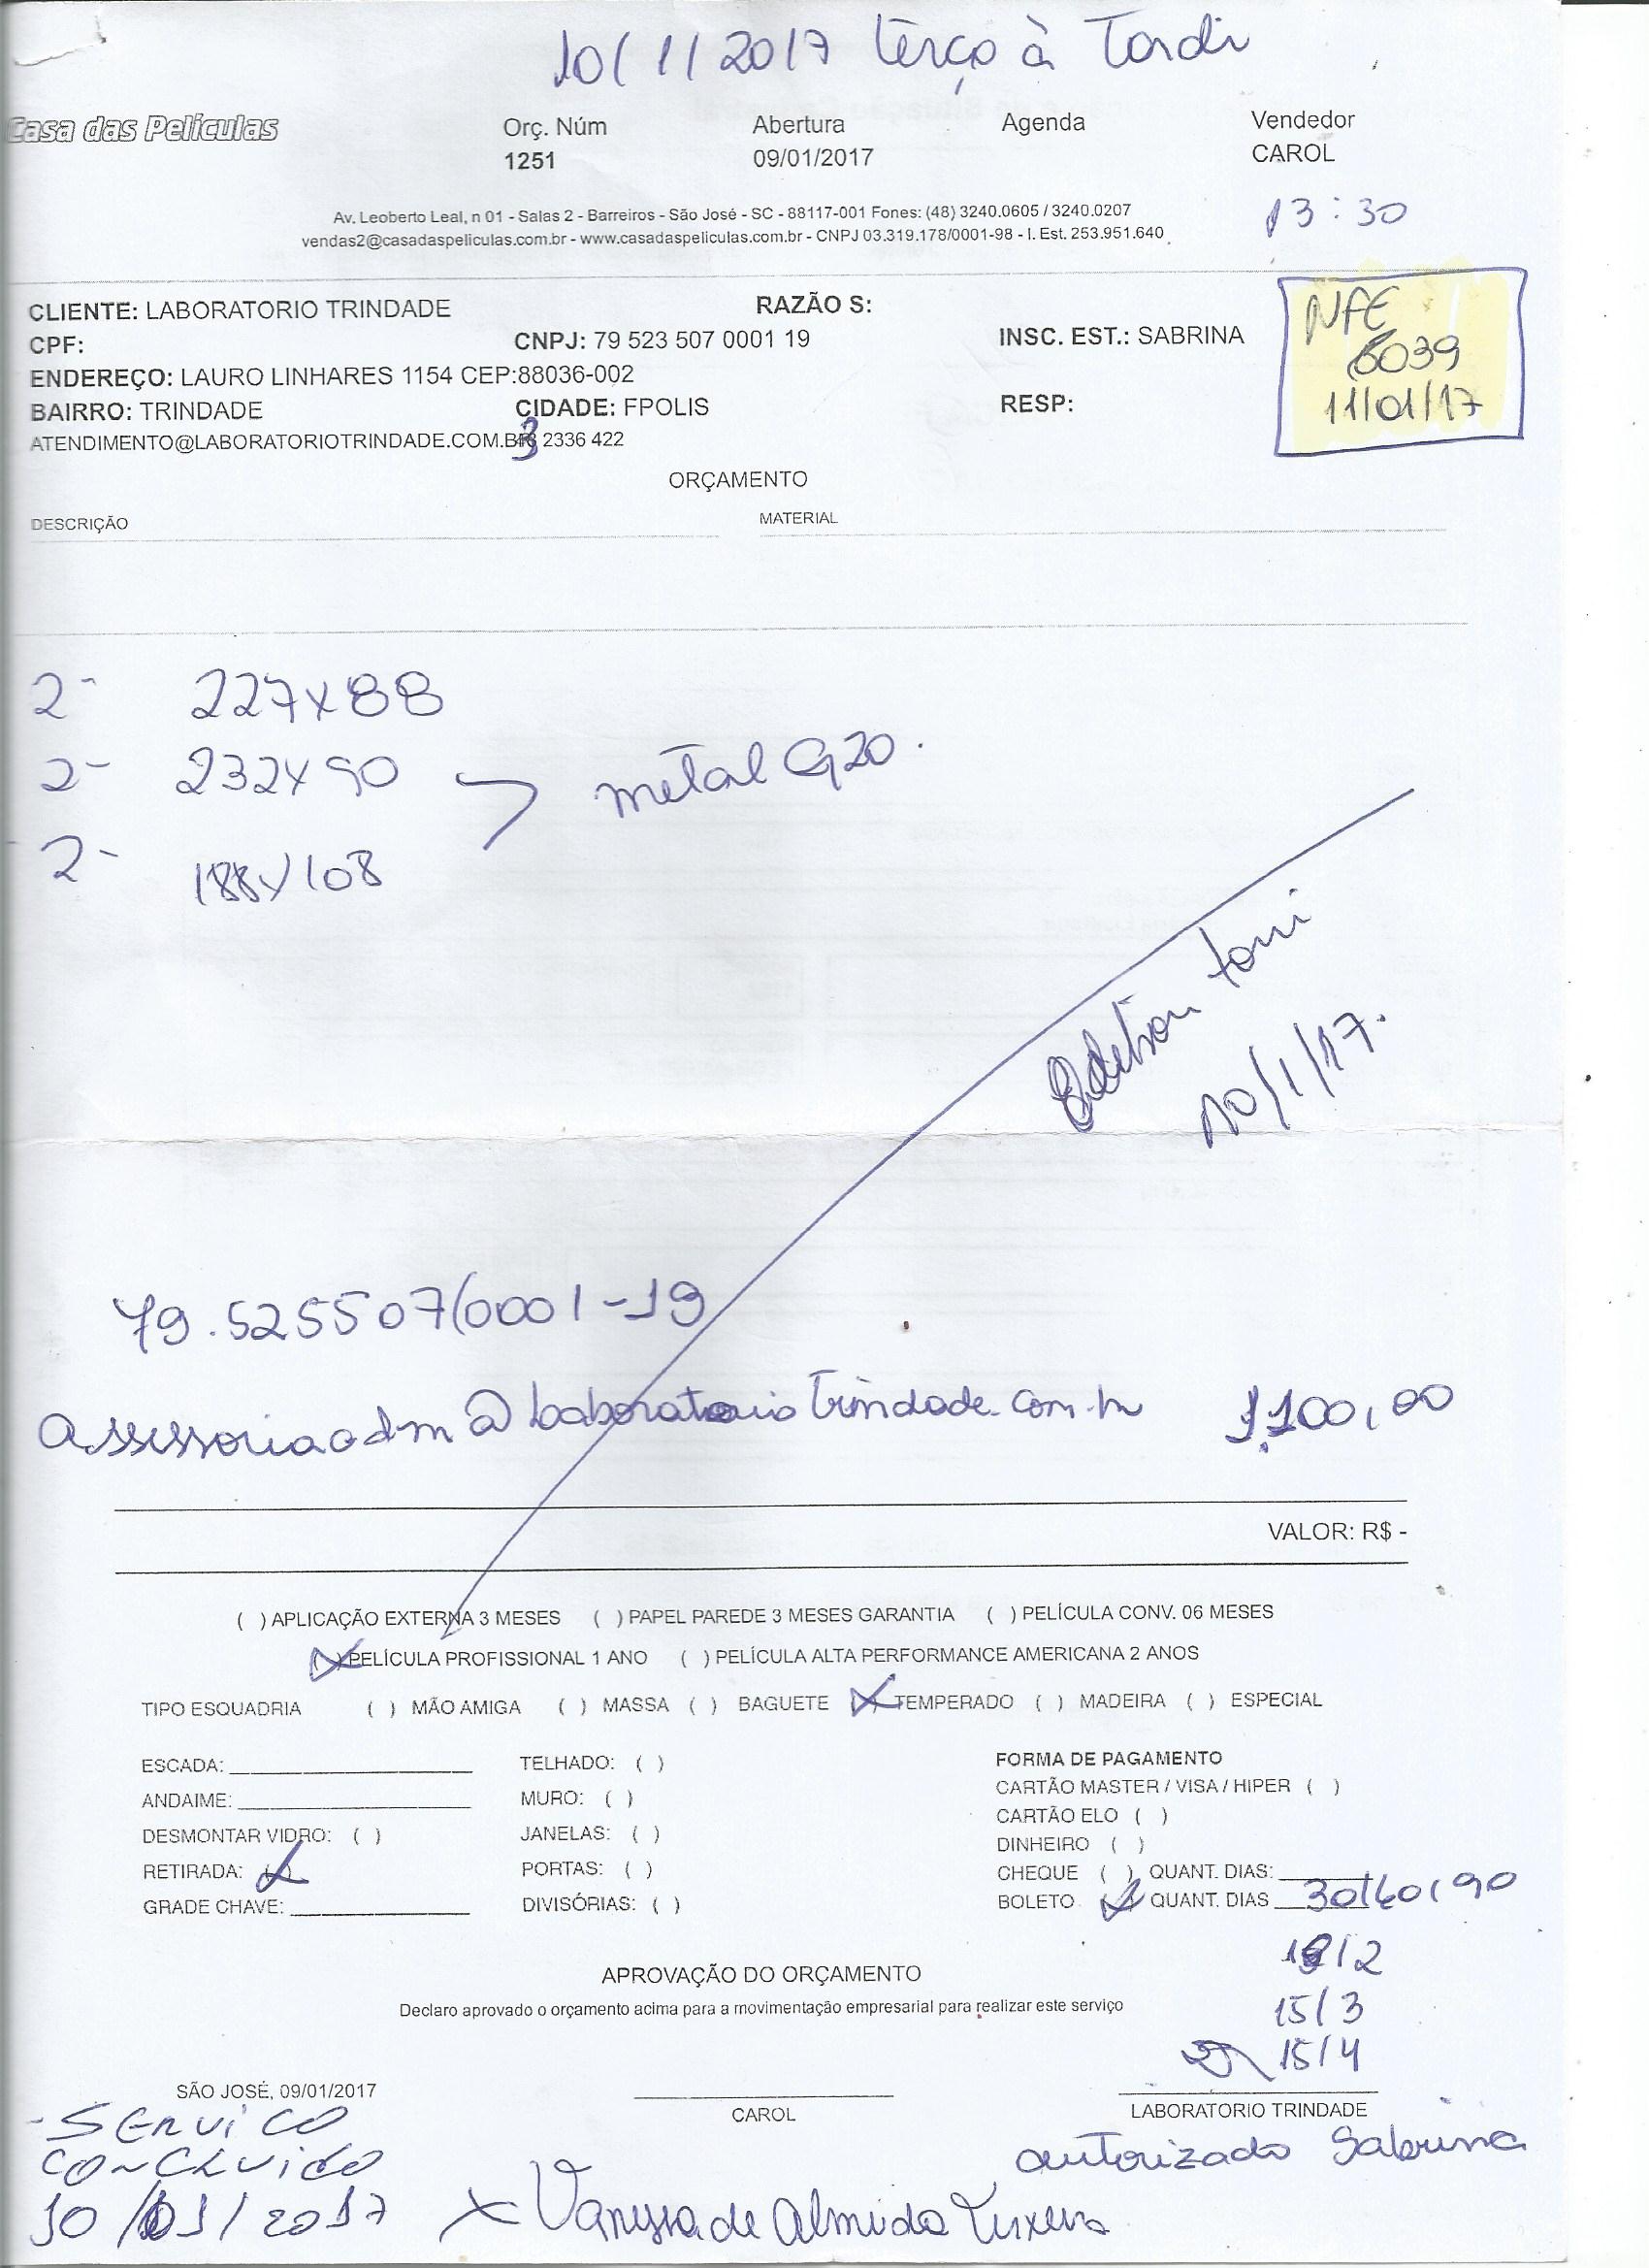 10/1/2017 terça à Tarde
Casa das Películas
Orç. Núm Abertura Agenda Vendedor
1251 09/01/2017 CAROL
13:30
Av. Leoberto Leal, n 01 - Salas 2 - Barreiros - São José - SC - 88117-001 Fones: (48) 3240.0605 / 3240.0207
vendas2@casadaspeliculas.com.br - www.casadaspeliculas.com.br - CNPJ 03.319.178/0001-98 - I. Est. 253.951.640
CLIENTE: LABORATORIO TRINDADE RAZÃO S:
CPF: CNPJ: 79 523 507 0001 19 INSC. EST.: SABRINA
ENDEREÇO: LAURO LINHARES 1154 CEP:88036-002
BAIRRO: TRINDADE CIDADE: FPOLIS RESP:
ATENDIMENTO@LABORATORIOTRINDADE.COM.BR 3 2336 422
NFE
6039
11/01/17
ORÇAMENTO
DESCRIÇÃO MATERIAL
2- 227x88
2- 232x90 metal G20.
2- 188x108
10/1/17.
79.525507/0001-19
assessoriaadm@laboratoriotrindade.com.br 1.100,00
VALOR: R$ -
( ) APLICAÇÃO EXTERNA 3 MESES ( ) PAPEL PAREDE 3 MESES GARANTIA ( ) PELÍCULA CONV. 06 MESES
(X) PELÍCULA PROFISSIONAL 1 ANO ( ) PELÍCULA ALTA PERFORMANCE AMERICANA 2 ANOS
TIPO ESQUADRIA ( ) MÃO AMIGA ( ) MASSA ( ) BAGUETE (X) TEMPERADO ( ) MADEIRA ( ) ESPECIAL
ESCADA: TELHADO: ( ) FORMA DE PAGAMENTO
CARTÃO MASTER / VISA / HIPER ( )
ANDAIME: MURO: ( ) CARTÃO ELO ( )
DESMONTAR VIDRO: ( ) JANELAS: ( ) DINHEIRO ( )
RETIRADA: (X) PORTAS: ( ) CHEQUE ( ) QUANT. DIAS:
GRADE CHAVE: DIVISÓRIAS: ( ) BOLETO (X) QUANT. DIAS 30/60/90
/2
15/3
15/4
APROVAÇÃO DO ORÇAMENTO
Declaro aprovado o orçamento acima para a movimentação empresarial para realizar este serviço
SÃO JOSÉ, 09/01/2017
CAROL LABORATORIO TRINDADE
autorizado Sabrina
-SERVICO
CONCLUIDO
10/01/2017 x Vanessa de Almeida